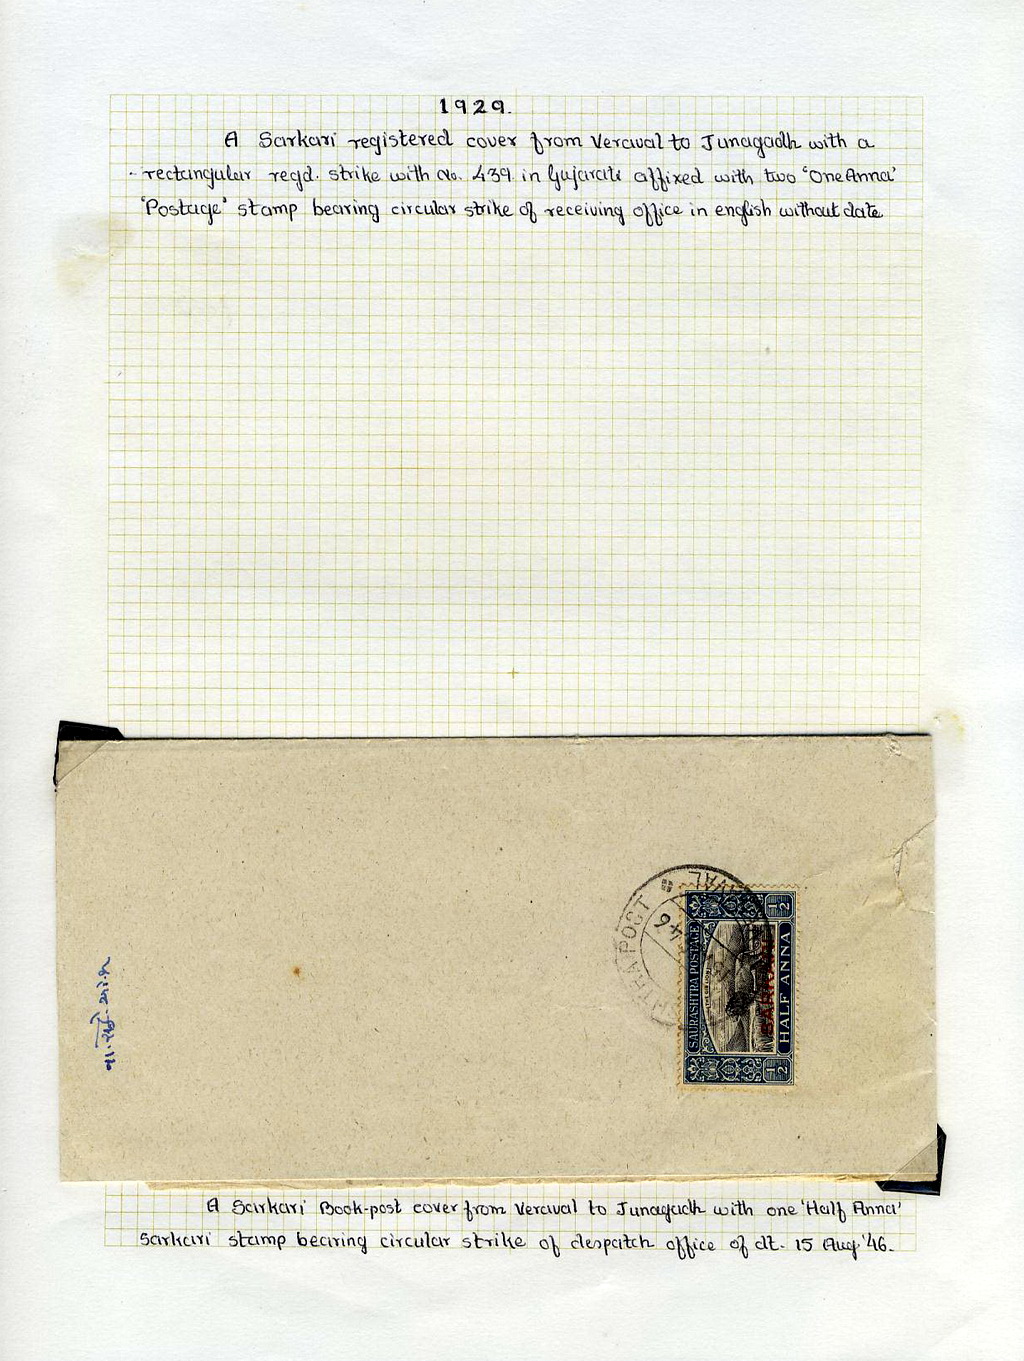 1929.
A Sarkari registered cover from Veraval to Junagadh with a
rectangular regd. strike with No. 439 in Gujarati affixed with two 'One Anna'
'Postage' stamp bearing circular strike of receiving office in english without date
VAL
TRA POST
46
SAURASHTRA POSTAGE
SARKARI
HALF ANNA
1/2
1/2
A Sarkari Book-post cover from Veraval to Junagadh with one 'Half Anna'
Sarkari stamp bearing circular strike of despatch office of dt. 15 Aug '46.